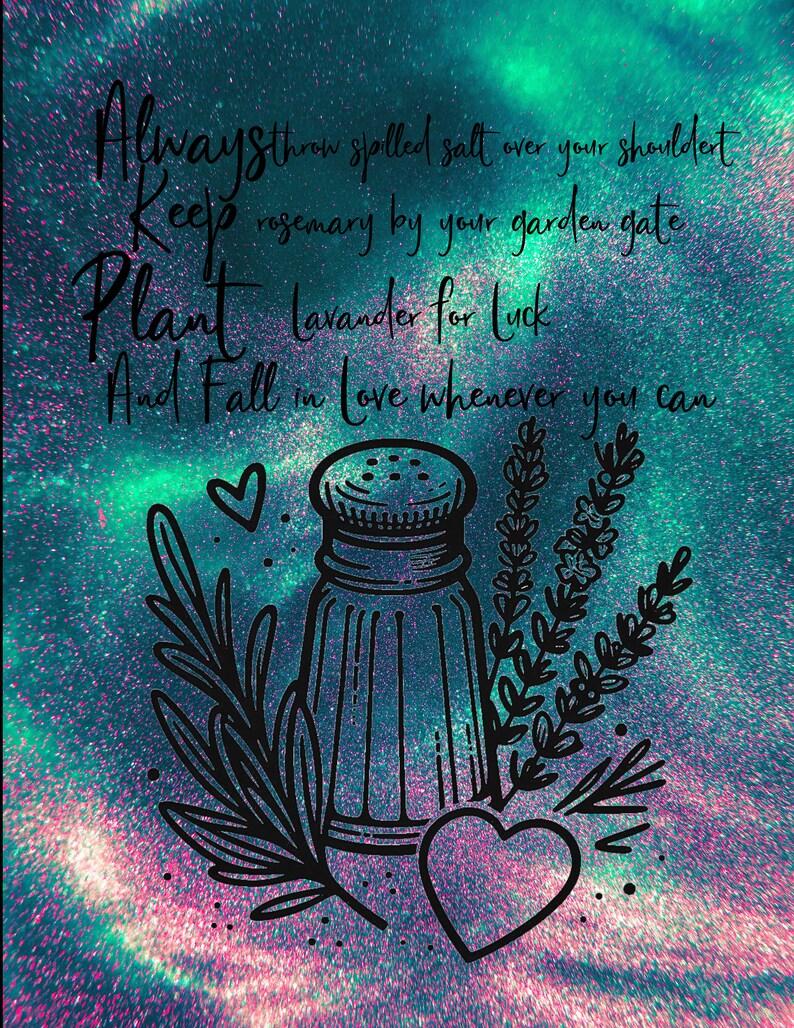 Always throw spilled salt over your shouldert
Keep rosemary by your garden gate
Plant Lavander for Luck
And Fall in Love whenever you can